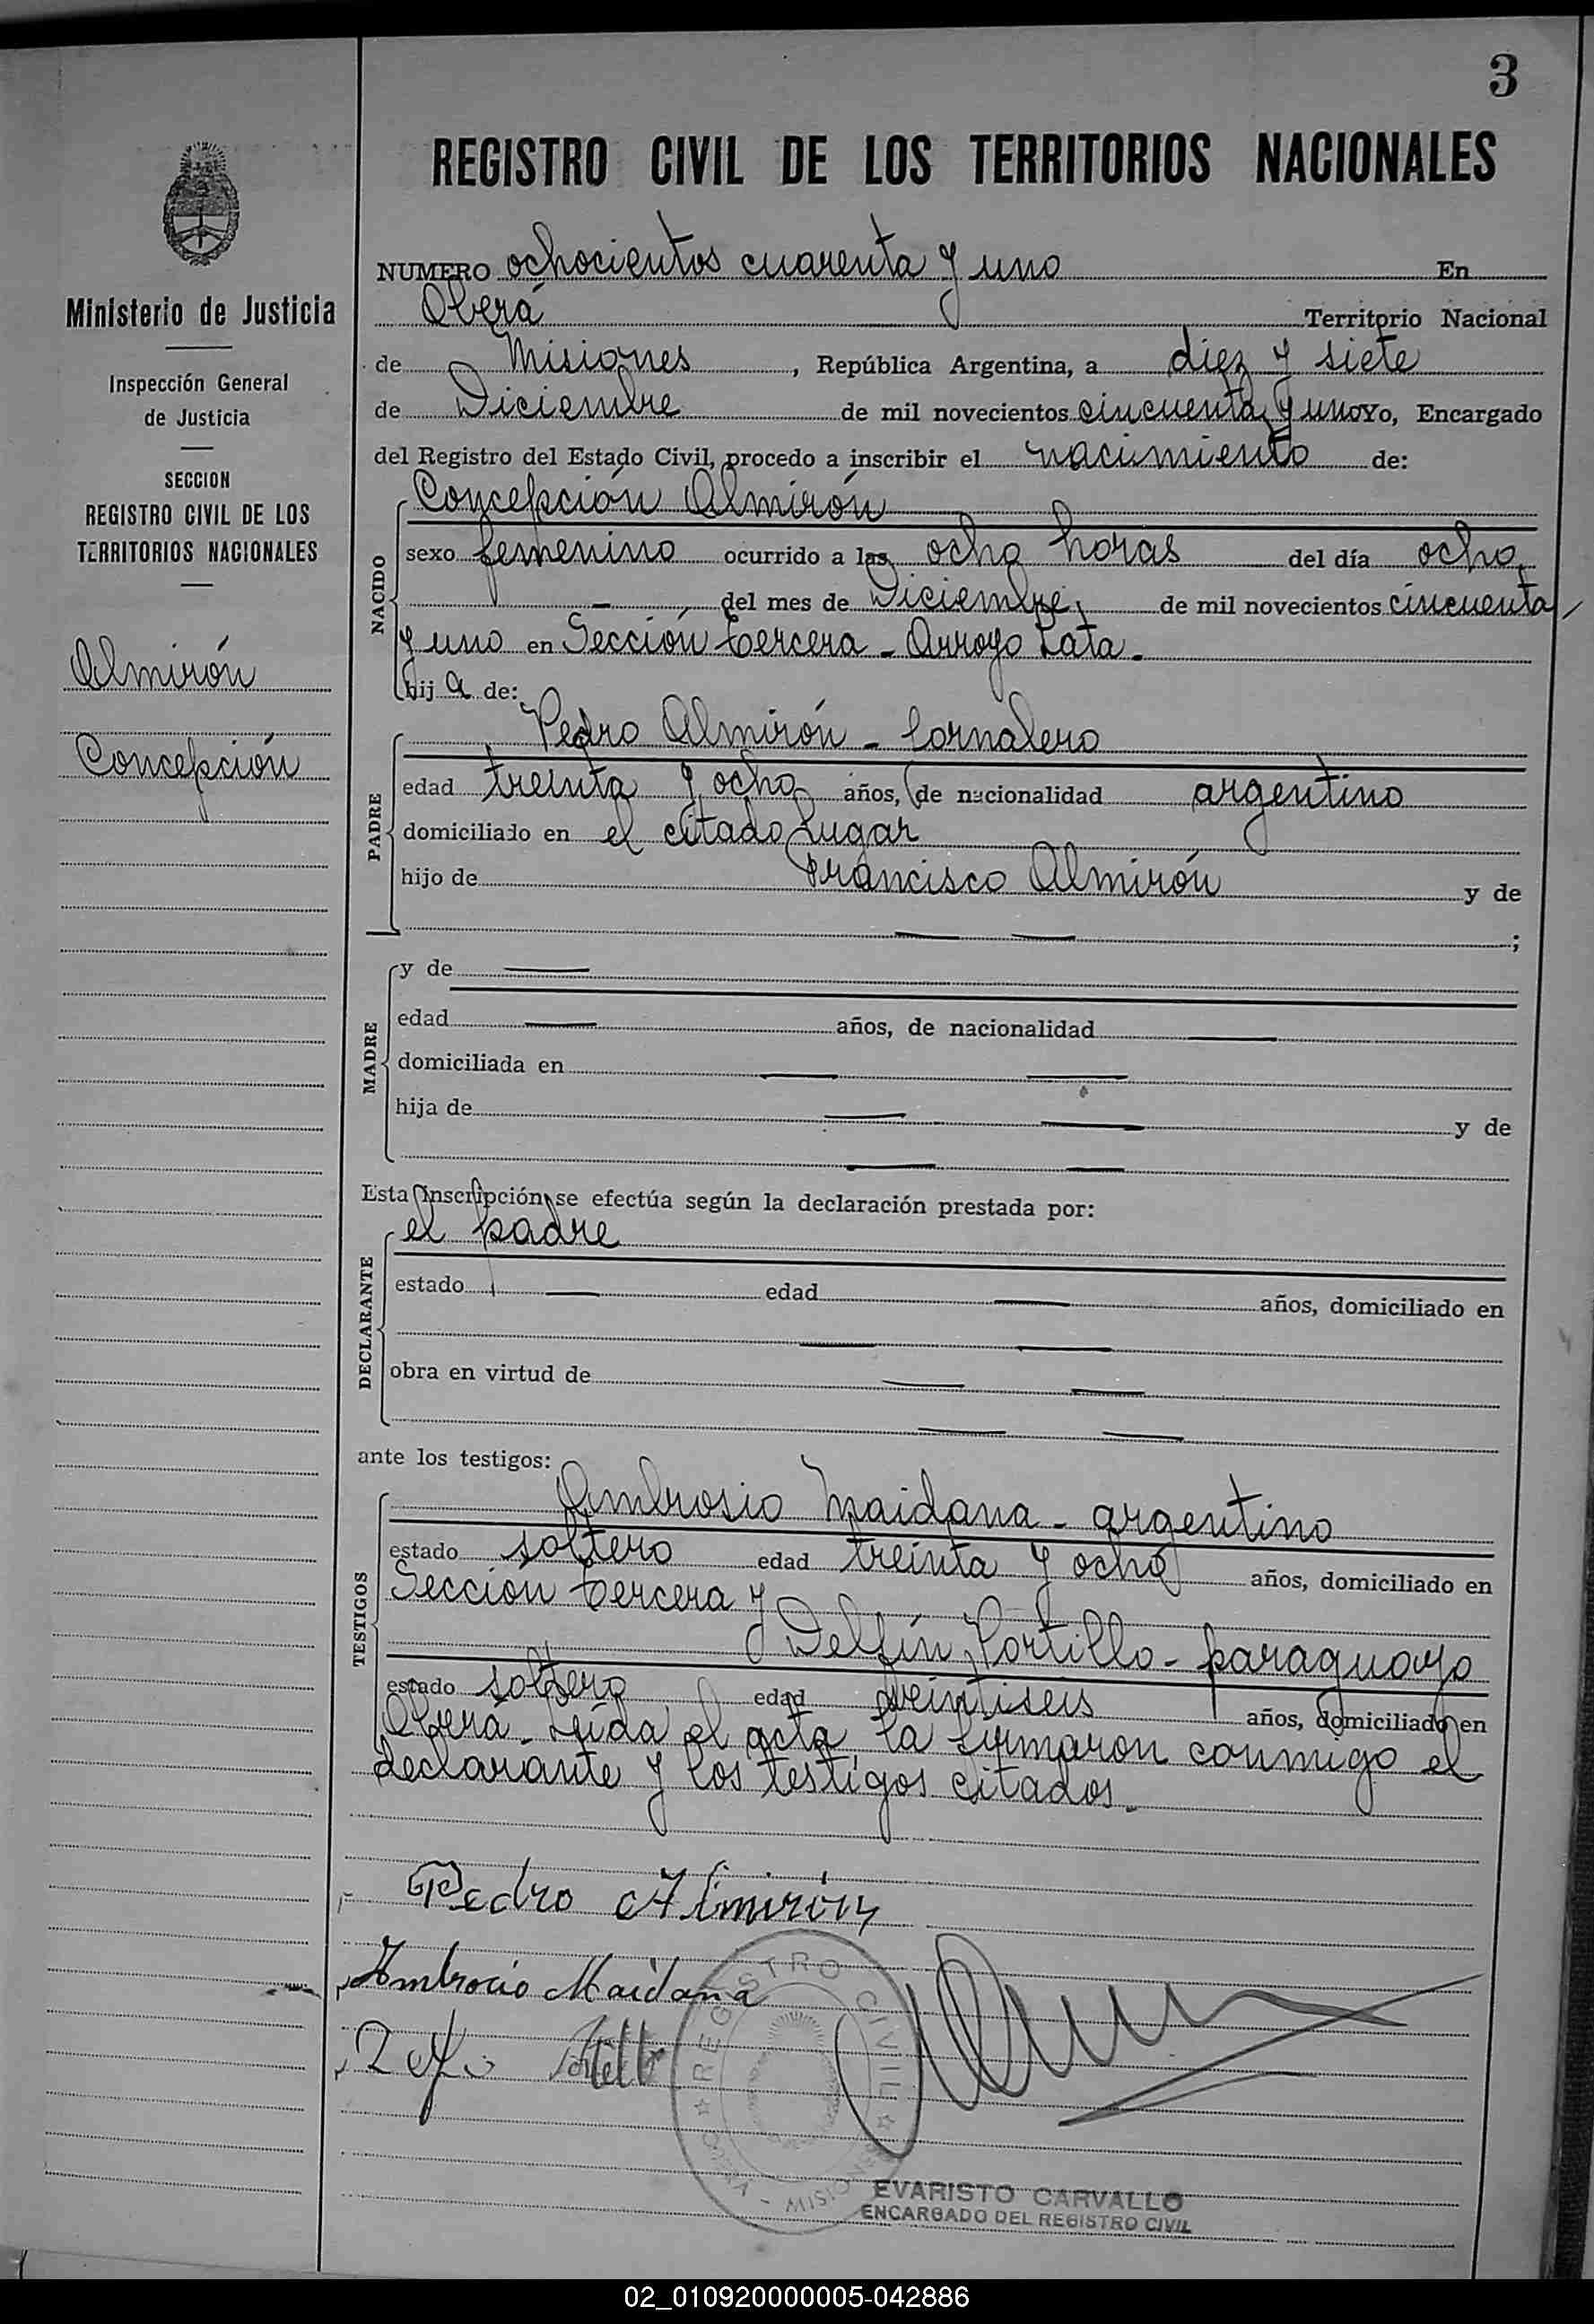 3
REGISTRO CIVIL DE LOS TERRITORIOS NACIONALES
Ministerio de Justicia
Inspección General
de Justicia
SECCION
REGISTRO CIVIL DE LOS
TERRITORIOS NACIONALES
Almirón
Concepción
NUMERO ochocientos cuarenta y uno En
Oberá Territorio Nacional
de Misiones, República Argentina, a diez y siete
de Diciembre de mil novecientos cincuenta y uno Yo, Encargado
del Registro del Estado Civil, procedo a inscribir el nacimiento de:
NACIDO
Concepción Almirón
sexo femenino ocurrido a las ocho horas del día ocho,
del mes de Diciembre, de mil novecientos cincuenta
y uno en Sección tercera - Arroyo
hij a de:
PADRE
Pedro Almirón - Jornalero
edad treinta y ocho años, de nacionalidad argentino
domiciliado en el citado lugar
hijo de Francisco Almirón y de
;
MADRE
y de
edad años, de nacionalidad
domiciliada en
hija de y de
Esta inscripción se efectúa según la declaración prestada por:
DECLARANTE
el padre
estado edad años, domiciliado en
obra en virtud de
ante los testigos:
TESTIGOS
Ambrosio Maidana - argentino
estado soltero edad treinta y ocho años, domiciliado en
Sección tercera y
Delfín Portillo - paraguayo
estado soltero edad veintiseis años, domiciliado en
Oberá - Leída el acta la firmaron conmigo el
declarante y los testigos citados.
Pedro Almirón
Ambrocio Maidana
REGISTRO CIVIL
OBERA - MISIONES
EVARISTO CARVALLO
ENCARGADO DEL REGISTRO CIVIL
02_010920000005-042886